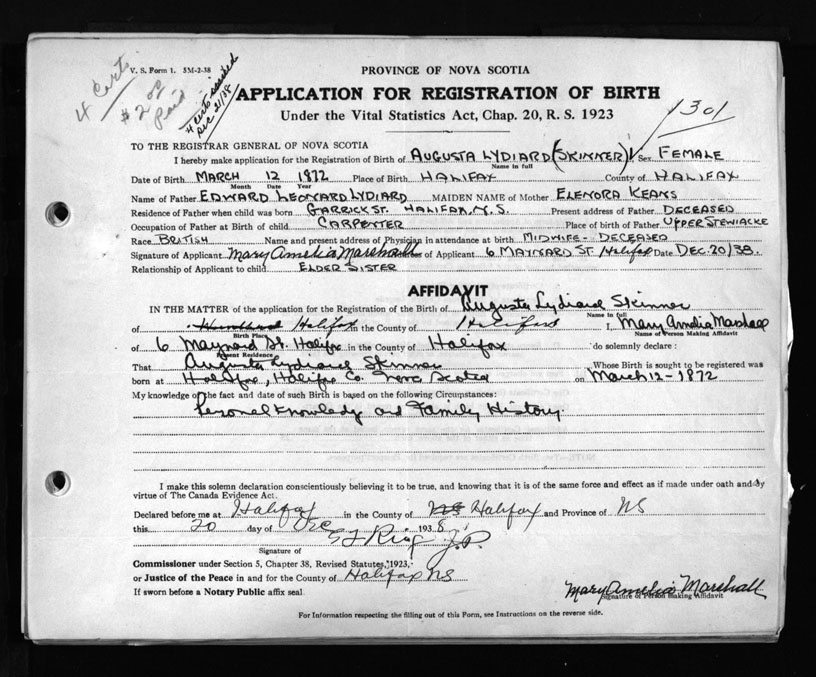 V. S. Form 1. 5M-2-38
4 Certs
$2.00
Paid
4 certs issued
Dec 21/38
PROVINCE OF NOVA SCOTIA
APPLICATION FOR REGISTRATION OF BIRTH
Under the Vital Statistics Act, Chap. 20, R. S. 1923
1301
TO THE REGISTRAR GENERAL OF NOVA SCOTIA
I hereby make application for the Registration of Birth of AUGUSTA LYDIARD (SKINNER) Sex FEMALE
Name in full
Date of Birth MARCH 12 1872 Place of Birth HALIFAX County of HALIFAX
Month Date Year
Name of Father EDWARD LEONARD LYDIARD MAIDEN NAME of Mother ELENORA KEANS
Residence of Father when child was born GARRICK ST. HALIFAX, N.S. Present address of Father DECEASED
Occupation of Father at Birth of child CARPENTER Place of birth of Father UPPER STEWIACKE
Race BRITISH Name and present address of Physician in attendance at birth MIDWIFE - DECEASED
Signature of Applicant Mary Amelia Marshall of Applicant 6 MAYNARD ST Halifax Date DEC. 20/38.
Relationship of Applicant to child ELDER SISTER
AFFIDAVIT
IN THE MATTER of the application for the Registration of the Birth of Augusta Lydiard Skinner
Name in full
of Halifax in the County of Halifax I, Mary Amelia Marshall
Birth Place Name of Person Making Affidavit
of 6 Maynard St. Halifax in the County of Halifax do solemnly declare:
Present Residence
That Augusta Lydiard Skinner Whose Birth is sought to be registered was
born at Halifax, Halifax Co. Nova Scotia on March 12-1872
My knowledge of the fact and date of such Birth is based on the following Circumstances:
Personal Knowledge and Family History.
I make this solemn declaration conscientiously believing it to be true, and knowing that it is of the same force and effect as if made under oath and by
virtue of The Canada Evidence Act.
Declared before me at Halifax in the County of Halifax and Province of NS
this 20 day of Dec 1938.
J.P.
Signature of
Commissioner under Section 5, Chapter 38, Revised Statutes, 1923,
or Justice of the Peace in and for the County of Halifax NS
If sworn before a Notary Public affix seal
Mary Amelia Marshall
Signature of Person Making Affidavit
For Information respecting the filling out of this Form, see Instructions on the reverse side.